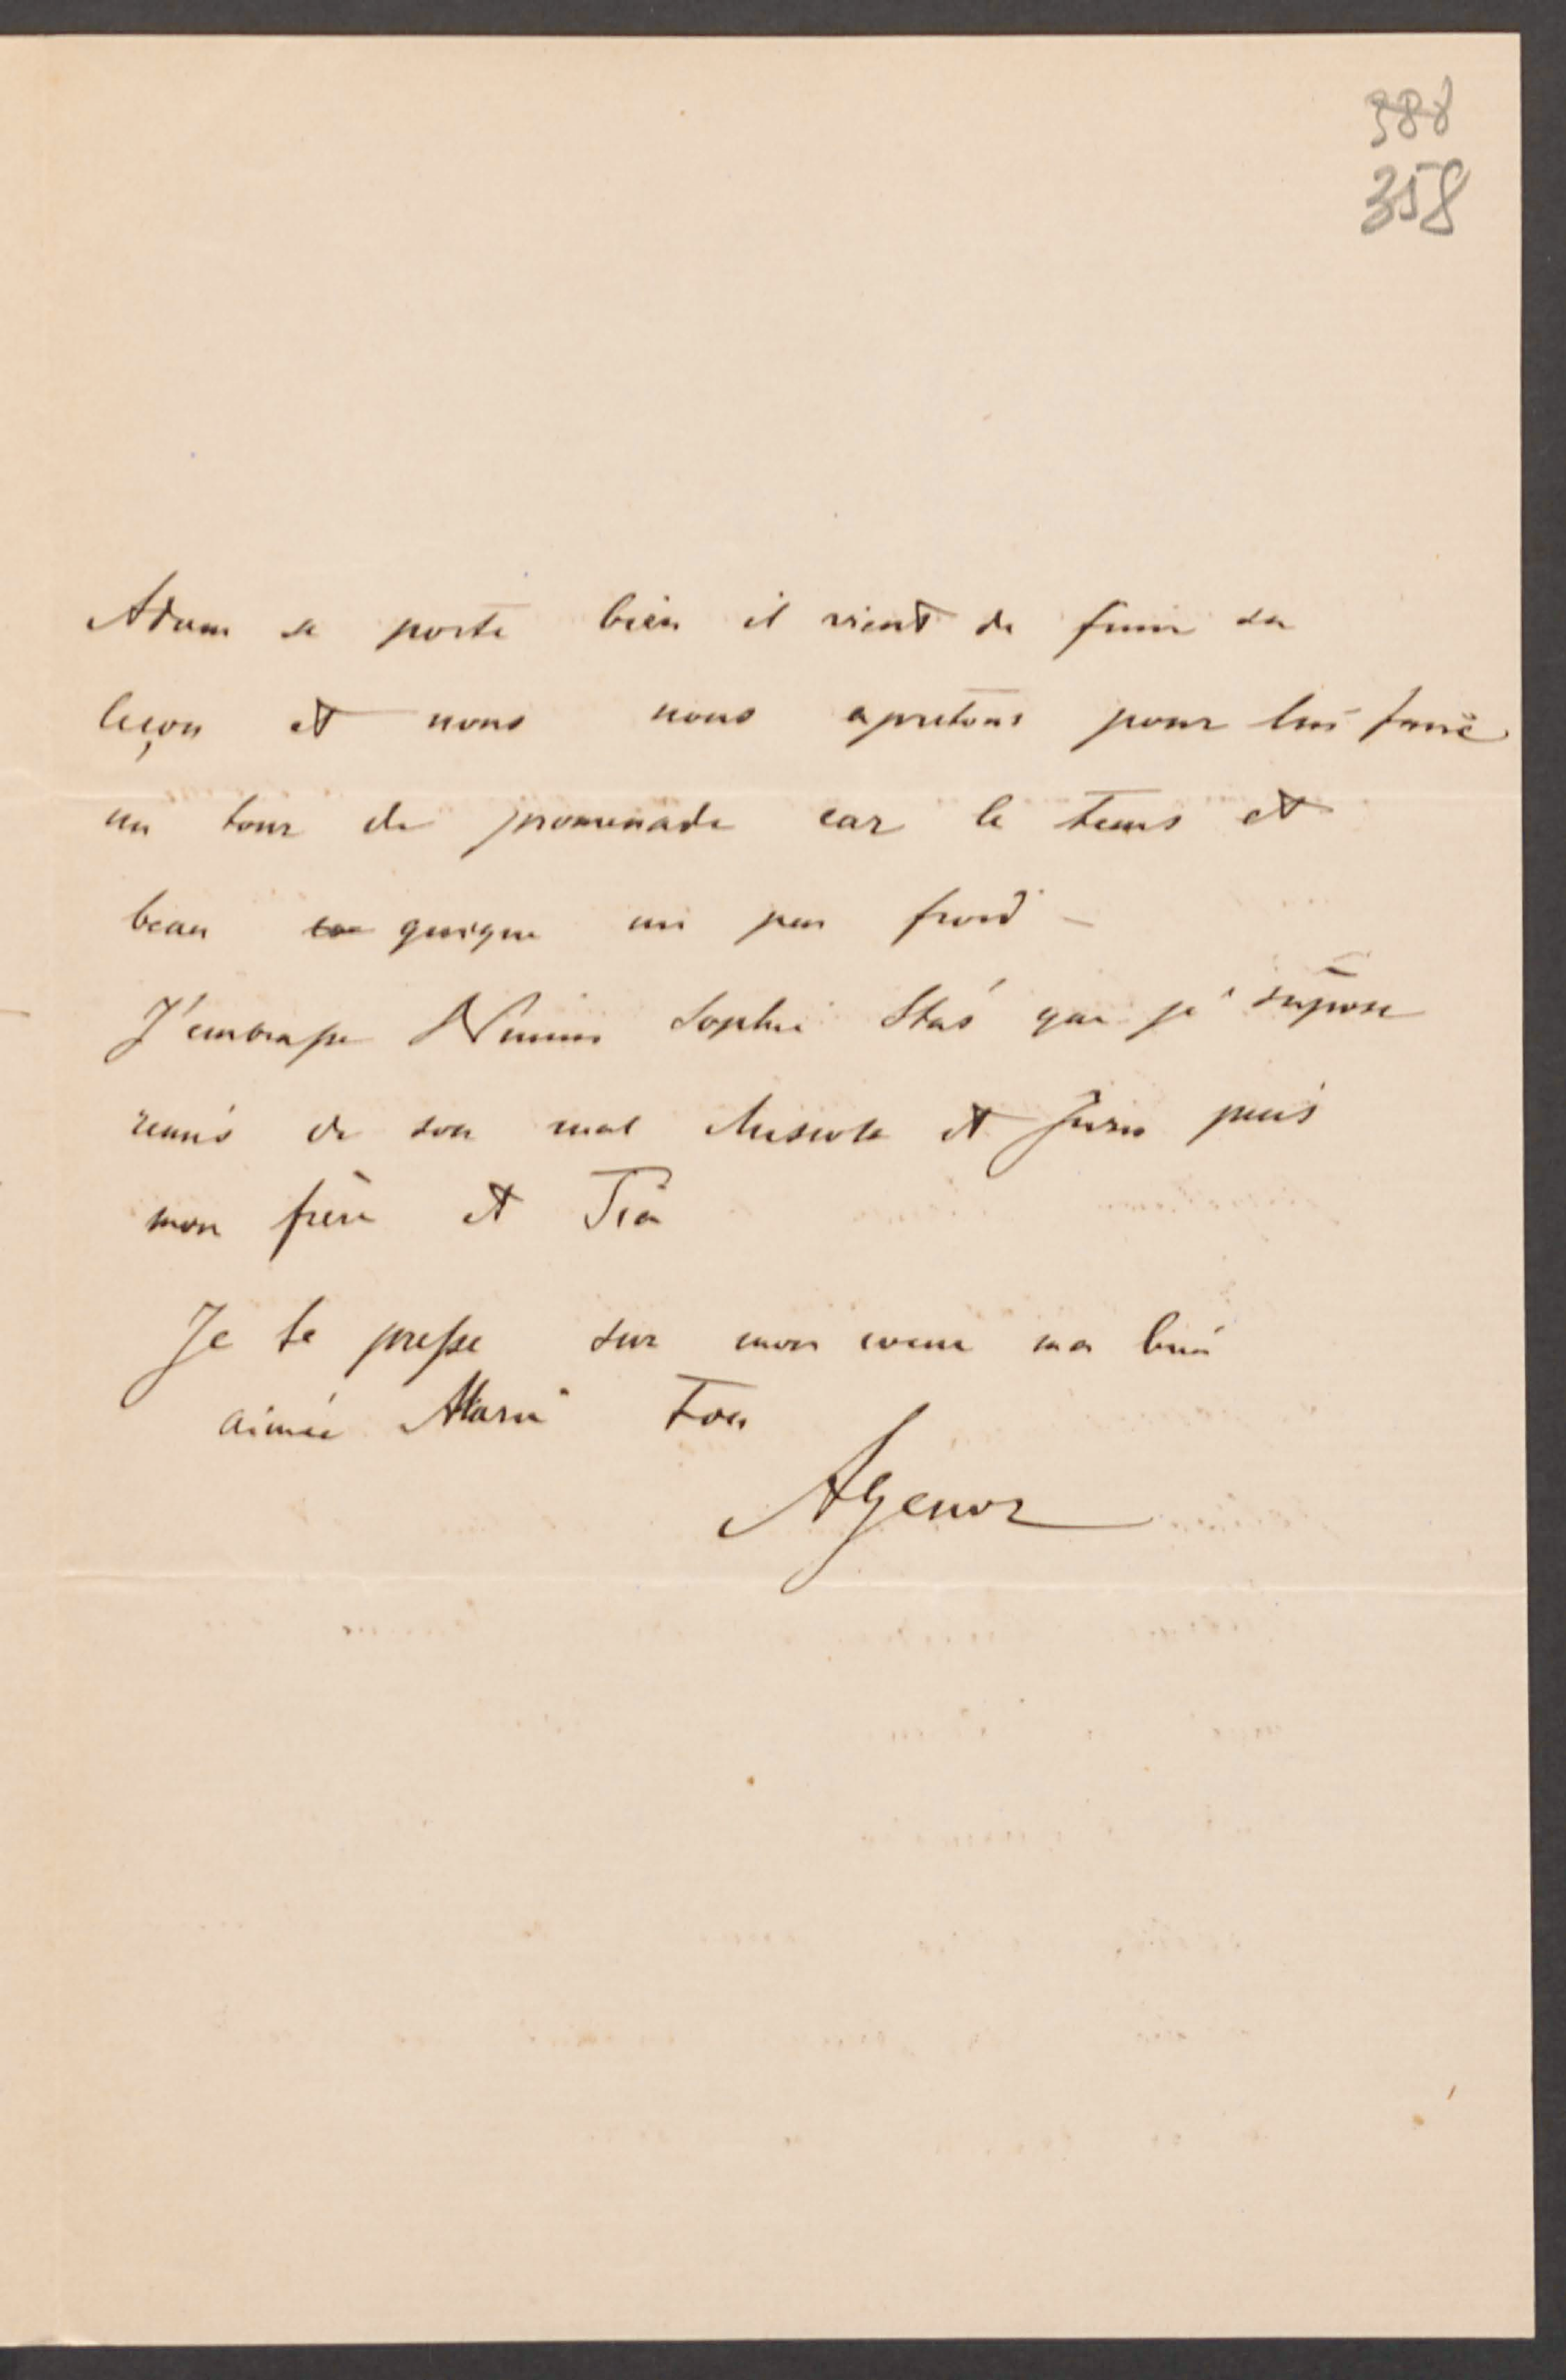 388
358
Adam se porte bien il vient de finir sa
leçon et nous nous apretons pour lui faire
un tour de promenade car le tems et
beau quique un peu froid –
J'embrasse Sophie Staś que je supose
remis de son mal et puis
mon frère et
Je te presse sur mon coeur ma bien
aimée Marie Ton
Agenor